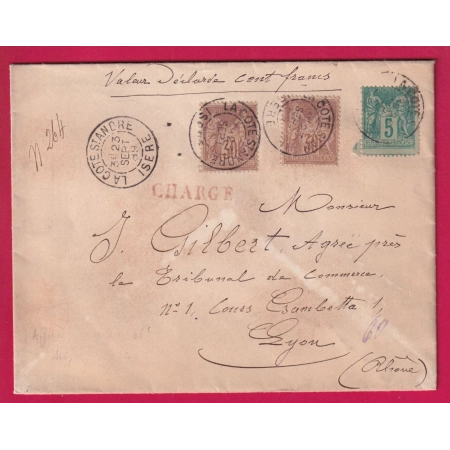 Valeur Déclarée cent francs
N 264
LA COTE ST ANDRE
23
SEPT
ISERE
LA COTE ST ANDRE
LA COTE
LA COTE
5
CHARGÉ
Monsieur
J. Gilbert, Agréé près
le Tribunal de Commerce,
N° 1, Cours Gambetta 1,
Lyon
(Rhône)